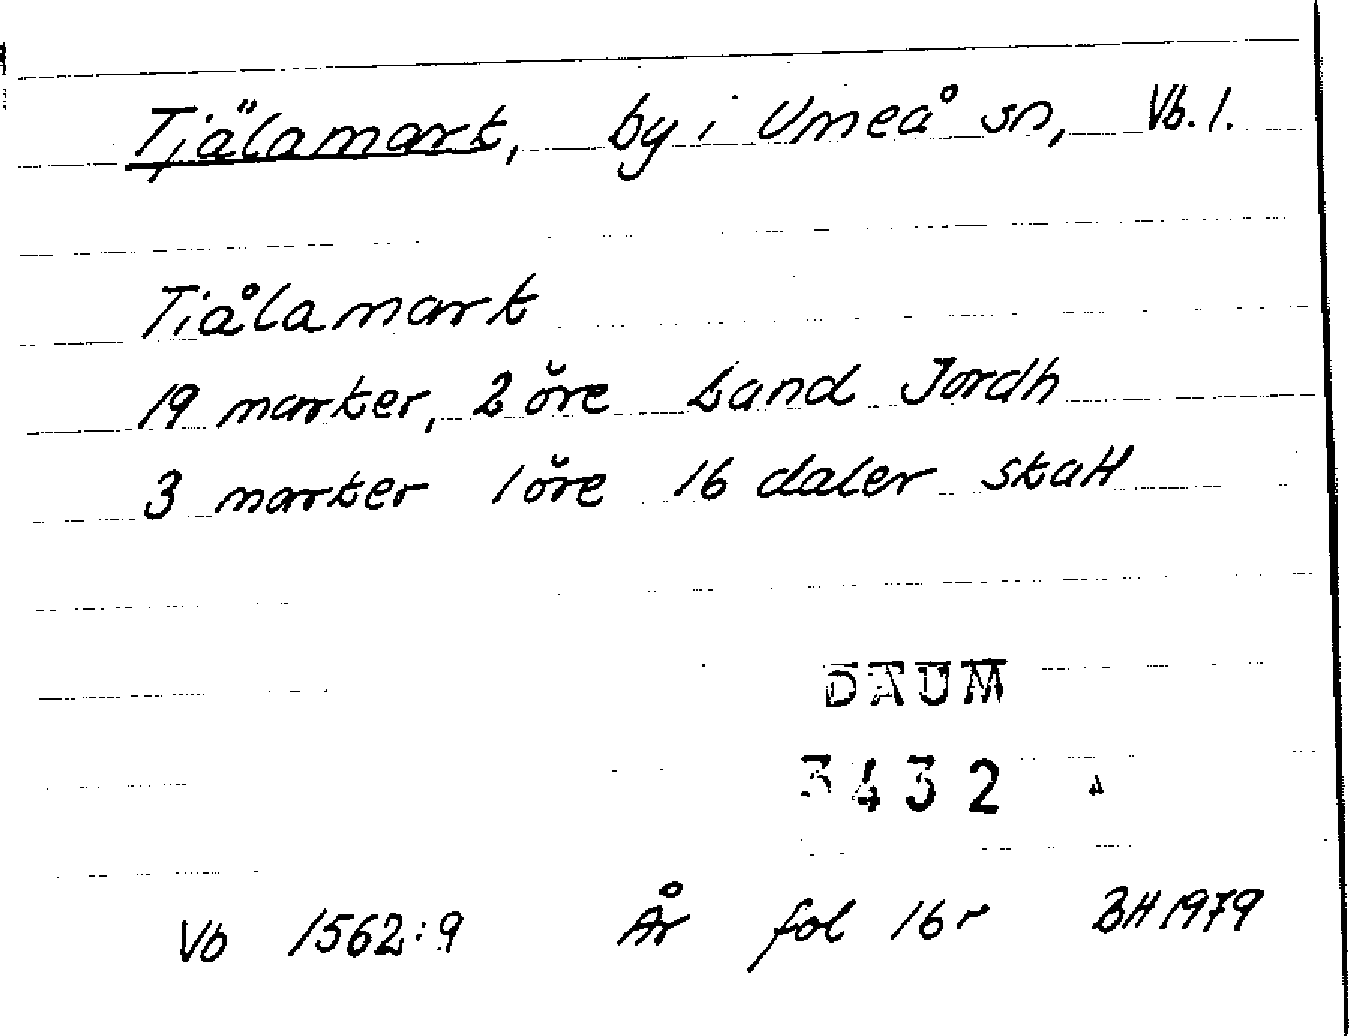 Tjälamark, by i Umeå sn, Vb. l.
Tiålamark
19 marker, 2 öre Land Jordh
3 marker 1 öre 16 daler skatt
DAUM
3432
Vb 1562:9 År fol 16r BH 1979